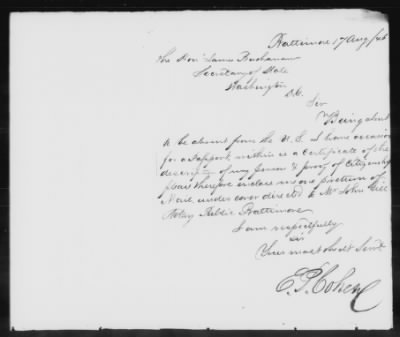 Baltimore 17 Aug /46
The Hon. James Buchanan
Secretary of State
Washington
D.C.
Sir
Being about
to be absent from the U.S. I have occasion
for a Passport, within is a Certificate of the
description of my person & proof of Citizenship
please therefore enclose me one pr return of
Mail under cover directed to Mr John Gill
Notary Public Baltimore
I am respectfully
Sir
Your most obdt Servt
E. P. Cohen